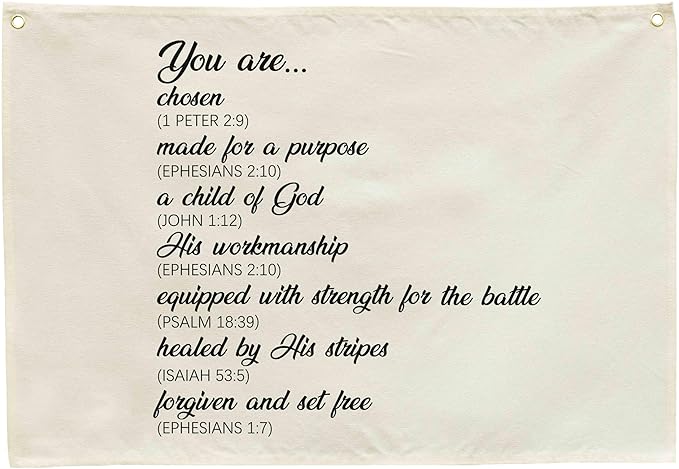 You are...
chosen
(1 PETER 2:9)
made for a purpose
(EPHESIANS 2:10)
a child of God
(JOHN 1:12)
His workmanship
(EPHESIANS 2:10)
equipped with strength for the battle
(PSALM 18:39)
healed by His stripes
(ISAIAH 53:5)
forgiven and set free
(EPHESIANS 1:7)